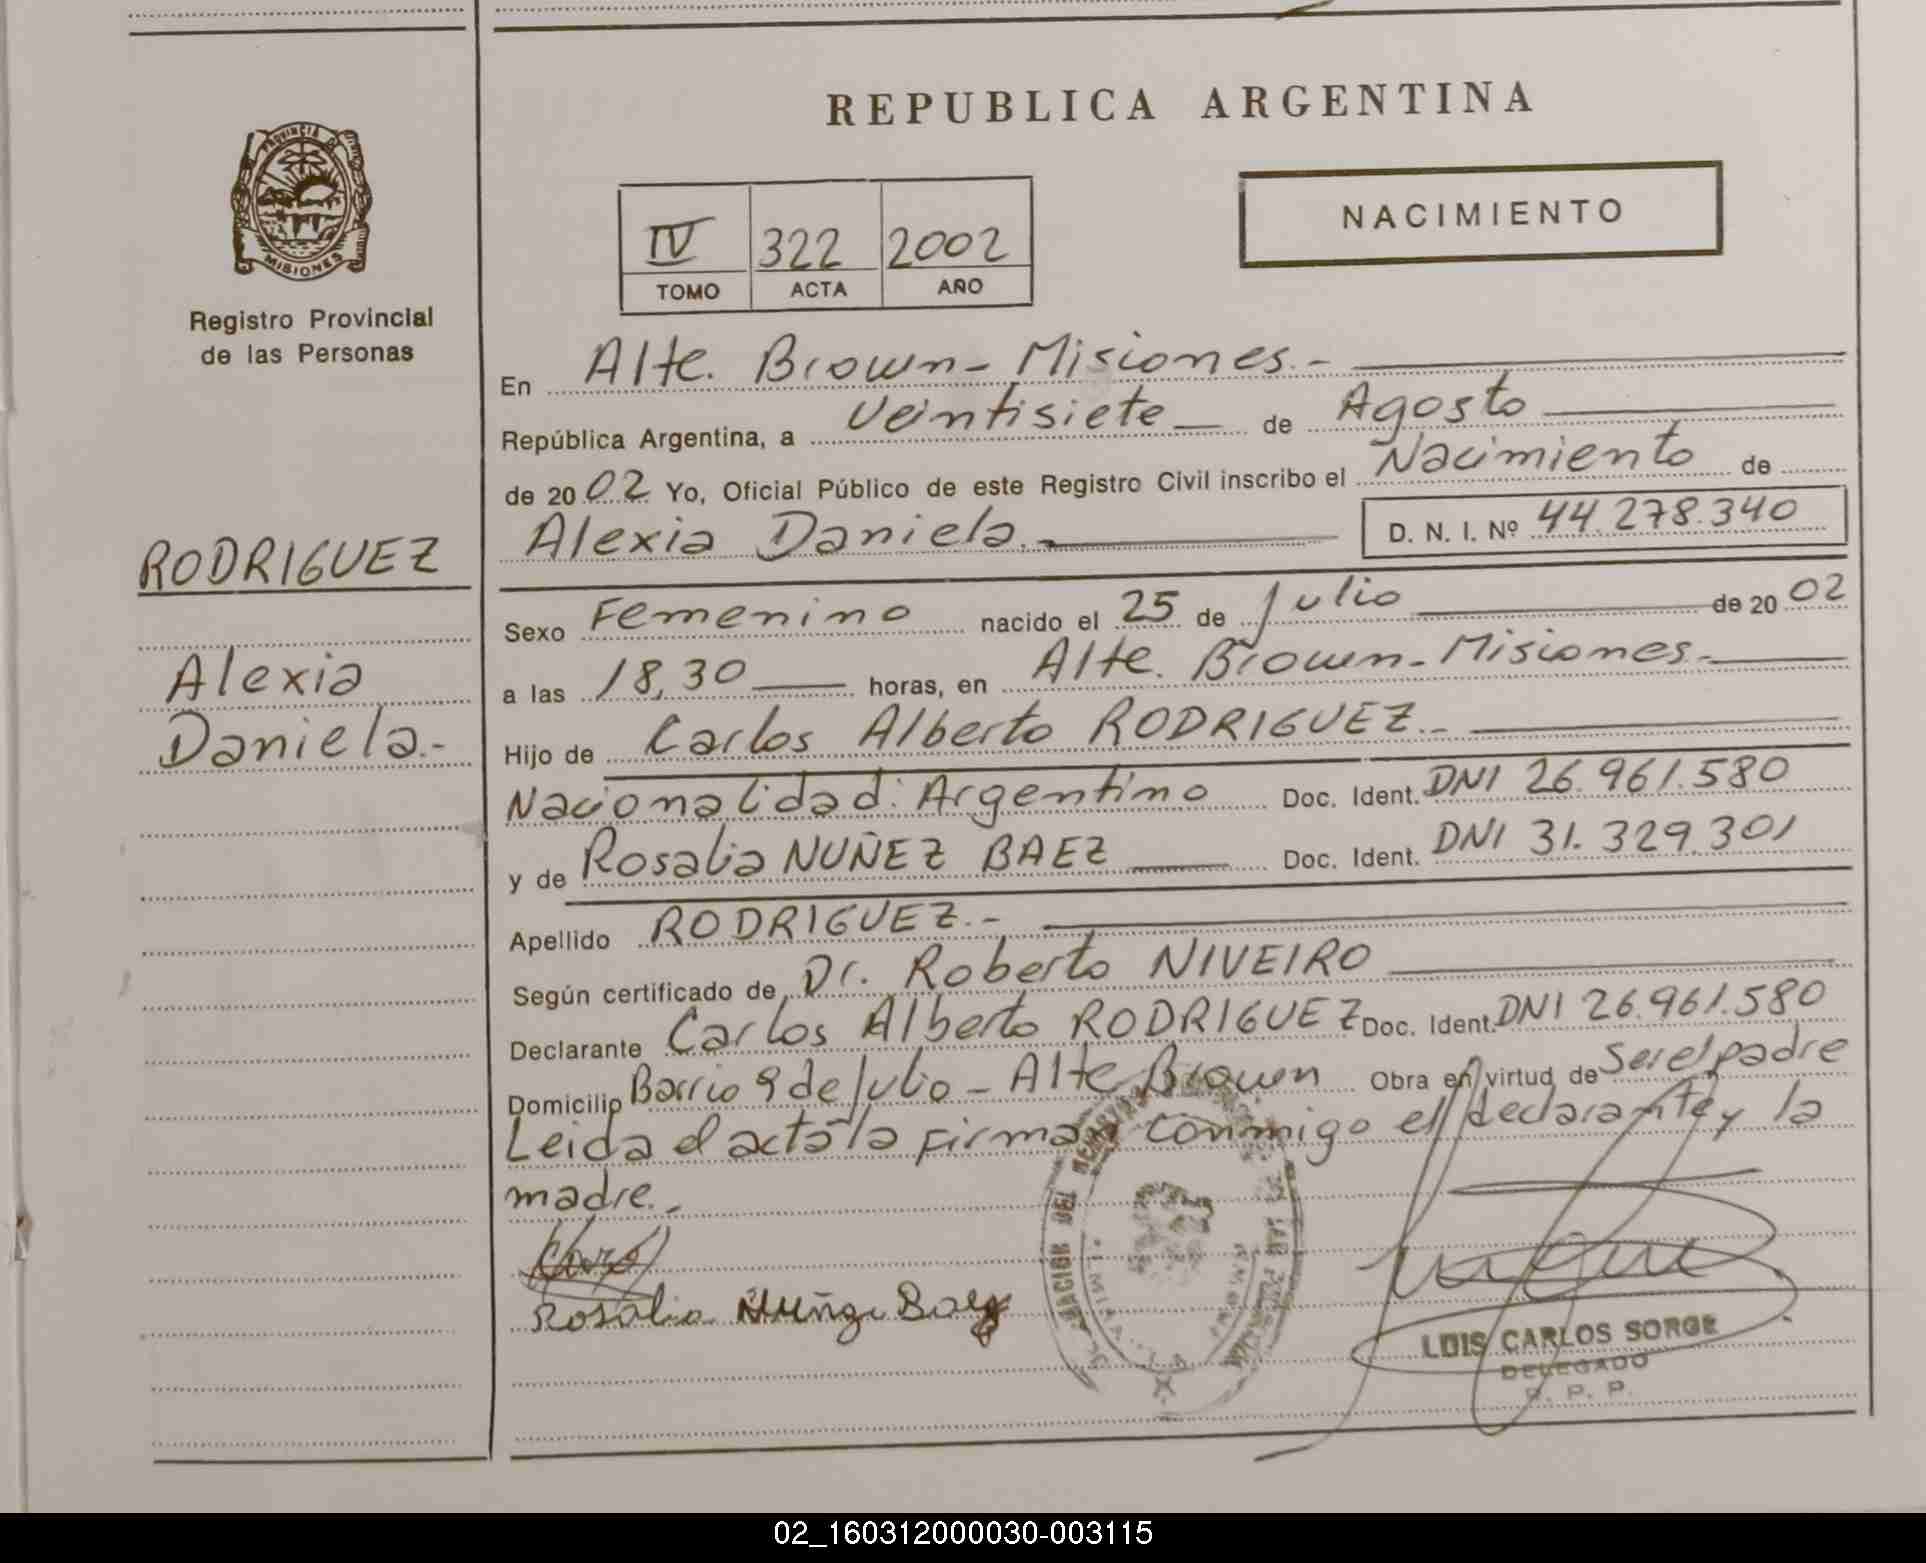 REPUBLICA ARGENTINA
PROVINCIA DE
MISIONES
Registro Provincial
de las Personas
IV 322 2002
TOMO ACTA AÑO
NACIMIENTO
En Alte. Brown - Misiones.-
República Argentina, a veintisiete de Agosto
de 2002 Yo, Oficial Público de este Registro Civil inscribo el Nacimiento de
Alexia Daniela.- D. N. I. Nº 44.278.340
RODRIGUEZ
Alexia
Daniela.-
Sexo Femenino nacido el 25 de Julio de 2002
a las 18,30 horas, en Alte. Brown - Misiones.-
Hijo de Carlos Alberto RODRIGUEZ.-
Nacionalidad: Argentino Doc. Ident. DNI 26.961.580
y de Rosalia NUÑEZ BAEZ Doc. Ident. DNI 31.329.301
Apellido RODRIGUEZ.-
Según certificado de Dr. Roberto NIVEIRO
Declarante Carlos Alberto RODRIGUEZ Doc. Ident. DNI 26.961.580
Domicilio Barrio 9 de Julio - Alte Brown Obra en virtud de Ser el padre
Leida el acta la firman conmigo el declarante y la
madre.-
Rosalia Nuñez Baez
LUIS CARLOS SORGE
DELEGADO
R. P. P.
02_160312000030-003115